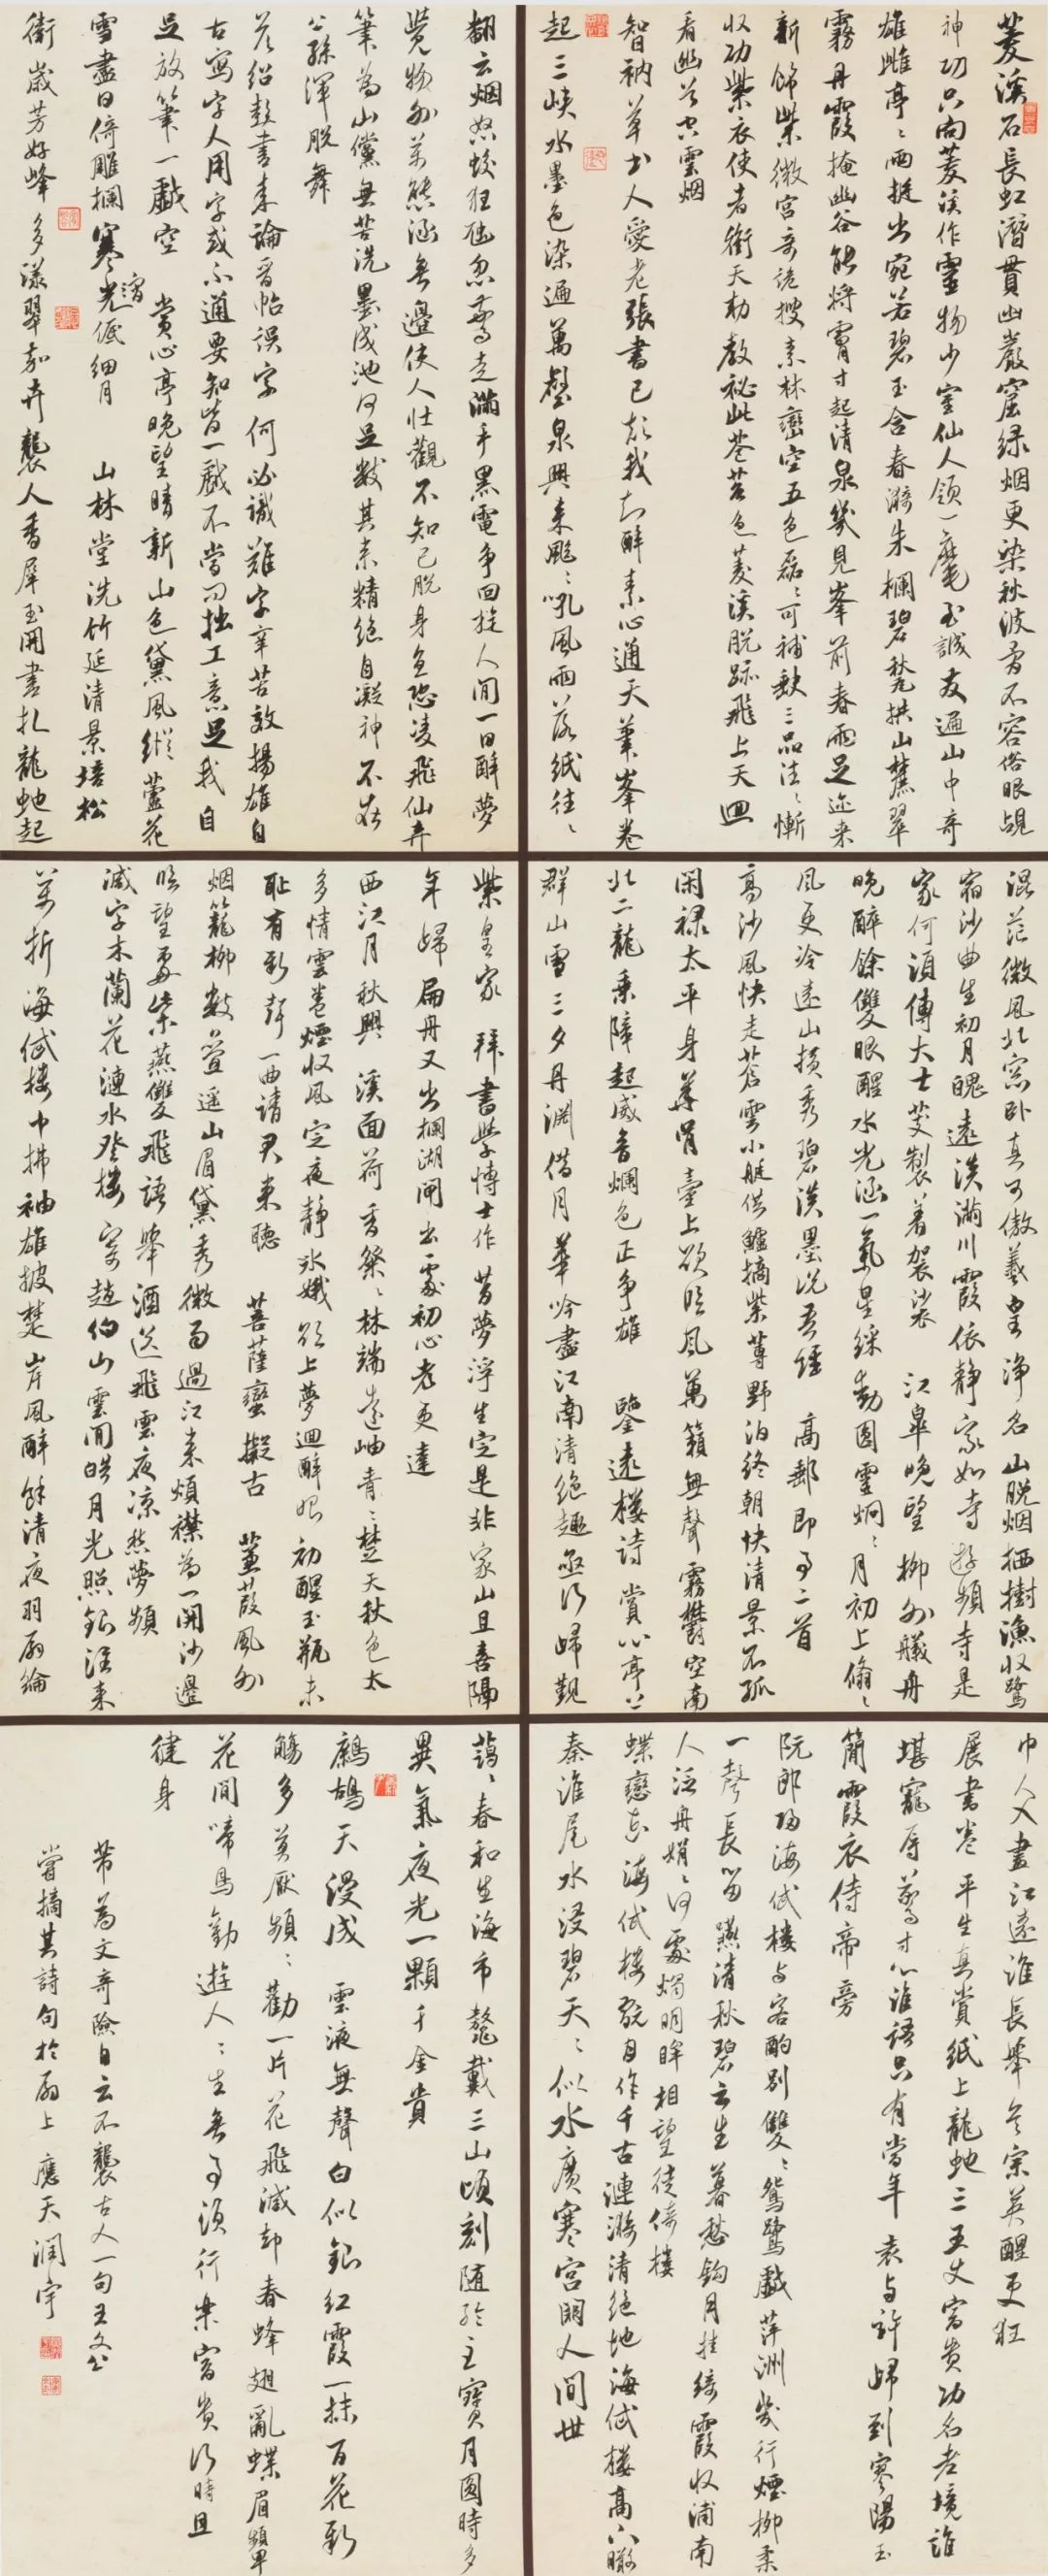 菱溪石長虹潛貫幽巖窟綠烟更染秋波骨不容俗眼覘
神功只向菱溪作靈物少室仙人領一麾至誠友遍山中奇
雄雌亭亭兩挺出宛若碧玉含春漪朱欄碧甃拱山麓翠
霧丹霞掩幽谷能將膚寸起清泉幾見峯前春雨足迩来
新飾紫微宮奇詭搜素林巒空五色磊磊可補缺三品法法慚
收功紫衣使者銜天勅教秘此蒼苔色菱溪脱跡飛上天回
看幽谷空雲烟
智衲草書人愛老張書已顛我知醉素心通天筆峯卷
起三峽水墨色染遍萬壑泉興来颸颸吼風雨落紙往往
翻云烟怒蛟狂虺忽驚走滿手黑電争回旋人間一日醉夢
覺物外萬態涵無邊使人壯觀不知已脱身直恐凌飛仙弃
筆為山儻無苦洗墨成池何足數其来精絶自凝神不在
公孫渾脱舞
答紹彭書来論晋帖误字何必識難字辛苦效揚雄自
古寫字人用字或不通要知皆一戲不當问拙工意足我自
足放筆一戲空　賞心亭晚望晴新山色黛風縱蘆花
雪盡日倚雕欄寒光低細月　山林堂洗竹延清景培松
衛歲芳好峰多漾翠嘉卉襲人香犀玉開書扎龍蛇起
混茫微風北窓卧真可傲羲皇净名山脱烟栖樹漁收鷺
宿沙曲生初月魄遠淡滿川霞依静家如寺遊頻寺是
家何須傳大士芰製着袈裟　江皐晚望　柳外艤舟
晚醉餘雙眼醒水光涵一氣星綵動圓靈炯炯月初上翛翛
風更泠遠山摸秀碧淡墨况吾經　高郵即事二首
高沙風快走蒼雲小艇供鱸摘紫蓴野泊終朝块清景不孤
閑禄太平身華胥臺上欲臨風萬籟無聲霧鬱空南
北二龍乗障起威音爛色正争雄　鑒遠樓詩　賞心亭上
群山雪三夕丹渊借月華吟盡江南清絶趣亟汭歸覲
紫皇家　拜書學博士作　昔夢浮生定是非家山且喜隔
年歸扁舟又出櫩湖閘出處初心老更違
西江月秋興　溪面荷香粲粲林端遠岫青青楚天秋色太
多情雲卷煙收風定夜静冰娥欲上夢迴醉眼初醒玉瓶未
耻有新聲一曲請君来聽　菩薩蠻擬古　蒹葭風外
烟籠柳數疊遥山眉黛秀微雨過江来煩襟為一開沙邊
临望處紫燕雙飛語舉酒送飛雲夜凉愁夢頻
減字木蘭花漣水登樓寄趙伯山雲間皓月光照銀淮来
萬折海岱樓中拂袖雄披楚岸風醉餘清夜羽扇綸
巾人入畫江遠淮長舉首宗英醒更狂
展書卷平生真賞紙上龍蛇三五丈富贵功名老境誰
堪寵辱驚寸心誰語只有當年袁与許歸到寥陽玉
簡霞衣侍帝旁
阮郎歸海岱樓与客酌别雙雙鴛鷺戲萍洲幾行煙柳柔
一聲長笛曉清秋碧云生暮愁鈎月挂綺霞收浦南
人泛舟娟娟何處燭明眸相望徒倚樓
蝶戀花海岱樓翫月作千古漣漪清绝地海岱樓高下瞰
秦淮尾水浸碧天天似水廣寒宮闕人間世
藹藹春和生海市鼇戴三山頃刻随輪至寶月圓時多
異氣夜光一顆千金貴
鷓鴣天漫成　雲液無聲白似銀红霞一抹百花新
觴多莫厭頻頻勸一片花飛減却春蜂翅亂蝶眉顰
花間啼鳥勸遊人人生無事須行樂富贵何時且
健身
芾為文奇險自云不襲古人一句王文公
嘗摘其詩句於扇上應天潤宇